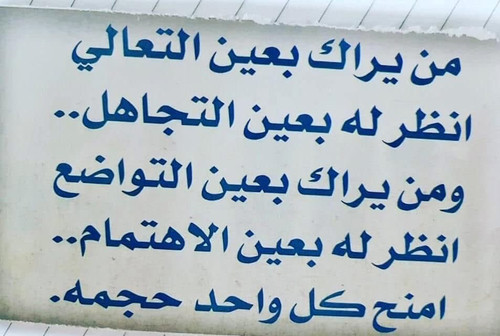 من يراك بعين التعالي
انظر له بعين التجاهل..
ومن يراك بعين التواضع
انظر له بعين الاهتمام..
امنح كل واحد حجمه.